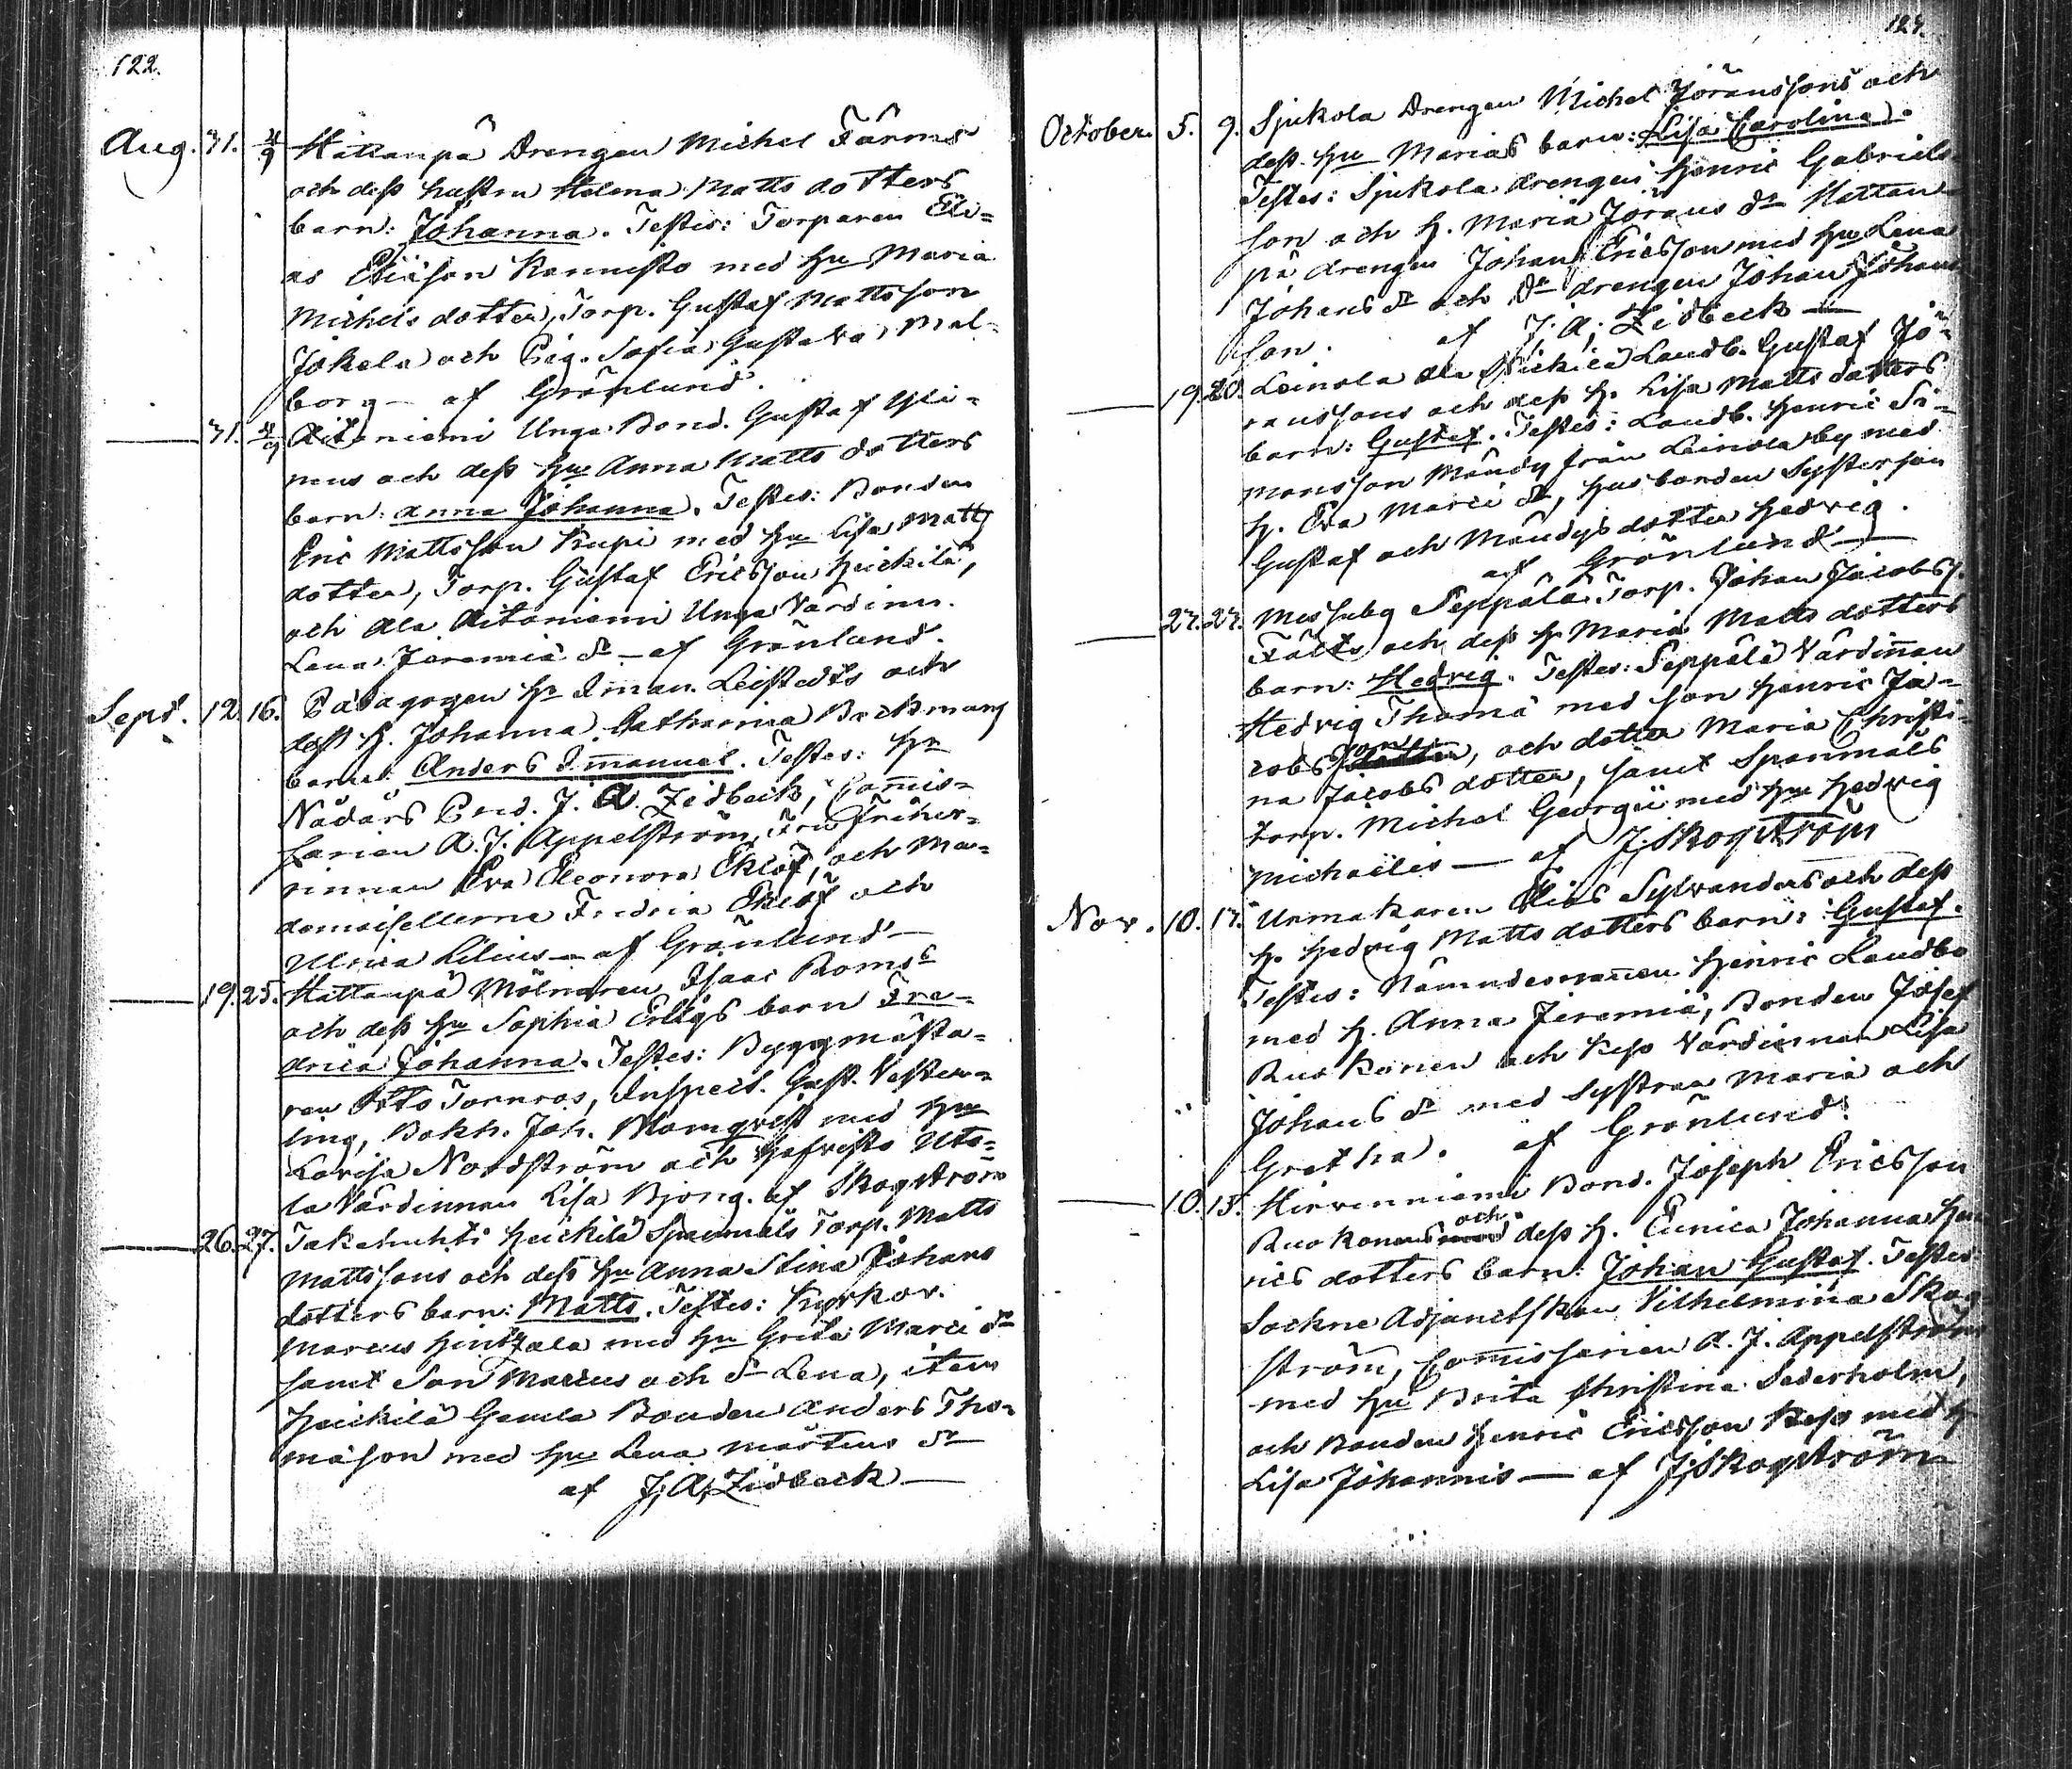 122.
Aug. 31. 4/9 Hattanpä Drengen Michel Färms
och dess hustru Helena Matts dotters
barn: Johanna. Testes: Torparen Eli=
as Eliäson Kannisto med hu Maria
Michels dotter, Torp. Gustaf Mattsson
Jokela och Pig. Sofia Gustava Mal=
borg — af Grönlund.
31. 4/9 Aitoniemi Unga Bond. Gustaf Yli=
nens och dess hu Anna Matts dotters
barn: Anna Johanna. Testes: Bonden
Eric Mattsson Krupi med hu Lisa Matts
dotter, Torp. Gustaf Ericsson Heickilä,
och Ala Aitoniemi Unga Värdinn.
Lena Jeremiä dr — af Grönlund.
Sept. 12. 16. Pädagogen Hr Iman. Leistedts och
dess h. Johanna Catharina Backmans
barn: Anders Immanuel. Testes: Hr
Nådårs Pred. J. A. Zidbäck, Commis=
sarien A. J. Appelström, Fru Friher=
rinnan Eva Eleonora Eklöf, och Ma=
domoisellerne Fredrica Eklöf och
Ulrica Lilius — af Grönlund —
19. 25. Hattanpä Mölnaren Isaac Roms
och dess hu Sophia Erligs barn Fre=
drica Johanna. Testes: Byggmästa=
ren Otto Tornros, Inspect. Gust. Vester=
ling, Bokh. Joh. Blomqvist med hu
Lovisa Nordström och Hofristo Uto=
la Värdinnan Lisa Bjong. af Skogström
26. 27. Takahuhti Heickilä Spanmåls Torp. Matts
Mattssons och dess hu Anna Stina Johans
dotters barn: Matts. Testes: Kyrkov.
Marcus Hintzala med hu Greta Marci dr
samt Son Marcus och dr Lena, item
Heickilä Gamla Bonden Anders Tho=
mäson med hu Lena Mårtens dr
af J. A. Zidbäck —
123.
October. 5. 9. Sjukola Drengen Michel Jöranssons och
dess hu Marias barn: Lisa Carolina.
Testes: Sjukola drengen Henric Gabriels
son och h. Maria Jörans dr Hattan
pä drengen Johan Ericsson med hu Lena
Johans dr och Dr drengen Johan Johans
son. af J. A. Zidbeck —
19. 20. Leinola Ala Nickilä Landb. Gustaf Jö=
ranssons och dess h. Lisa Matts dotters
barn: Gustaf. Testes: Landb. Henric Si=
monsson Måndy från Leinola by med
h. Eva Marci dr, husbonden Systerson
Gustaf och Måndys dotter Hedvig.
af Grönlund —
27. 27. Messuby Seppälä Torp. Johan Jacobs.
Fälts och dess h. Maria Matts dotters
barn: Hedvig. Testes: Seppälä Värdinnan
Hedvig Thomä med son Henric Ja=
cobsson, och dotter Maria Christi=
na Jacobs dotter, samt Spanmåls
torp. Michel Georgii med hu Hedvig
Michaëlis — af J. Skogström
Nov. 10. 17. Urmakaren Elias Sylvanders och dess
h. Hedvig Matts dotters barn: Gustaf.
Testes: Nämndemannen Henric Landbo
med h. Anna Jeremiä, Bonden Josef
Ruokonen och Keso Värdinnan Lisa
Johans dr med Systrar Maria och
Gretha. af Grönlund.
10. 15. Hirvenniemi Bond. Joseph Ericsson
Ruokonens och dess h. Eunica Johanna Hen
rics dotters barn: Johan Gustaf. Testes:
Sockne Adjunctskan Vilhelmina Skog
ström, Commissarien A. J. Appelström
med hu Brita Christina Sederholm,
och Bonden Henric Ericsson Keso med h.
Lisa Johannis — af J. Skogström